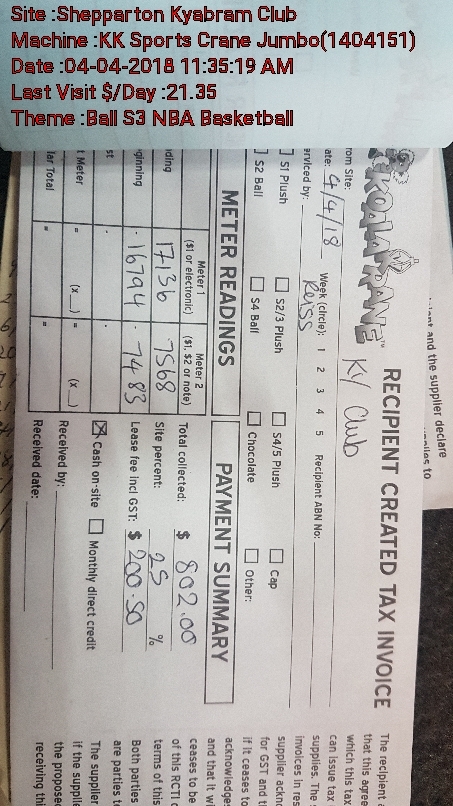 Site :Shepparton Kyabram Club
Machine :KK Sports Crane Jumbo(1404151)
Date :04-04-2018 11:35:19 AM
Last Visit $/Day :21.35
Theme :Ball S3 NBA Basketball
and the supplier declare
RECIPIENT CREATED TAX INVOICE
KOALA KRANE
rom Site: Ky Club
ate: 4/4/18 Week (circle): 1 2 3 4 5 Recipient ABN No:
erviced by: Reiss
S1 Plush S2/3 Plush S4/5 Plush Cap
S2 Ball S4 Ball Chocolate Other:
METER READINGS
Meter 1
($1 or electronic)
Meter 2
($1, $2 or note)
ding 17136 7568
ginning 16794 7483
st
t Meter = (x ) = (x )
lar Total = =
PAYMENT SUMMARY
Total collected: $ 802.00
Site percent: 25 %
Lease fee incl GST: $ 200.50
Cash on-site Monthly direct credit
Received by:
Received date:
The recipient
that this agree
which this ta
can issue tax
supplies. The
invoices in res
supplier ackn
for GST and t
if it ceases to
acknowledge
and that it w
ceases to be
of this RCTI
terms of this
Both parties
are parties t
The supplier
if the supplie
the propose
receiving thi